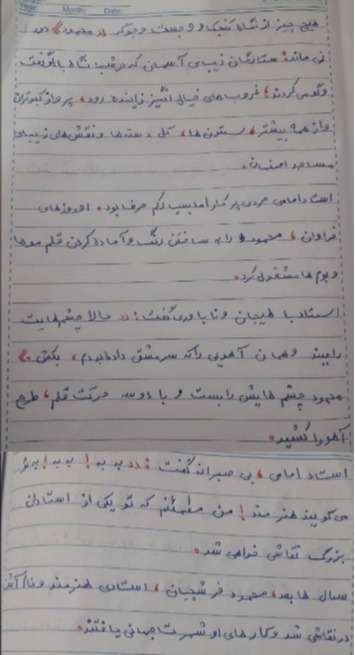 Year: Month: Date:
هیچ چیز از نگاه کنجکاو و جست و جوگر «محمود» دور
نمی ماند؛ ستارگان زیبای آسمان که در شب نگاه با او گفت
وگو می کردند، غروب های خیال انگیز زاینده رود، پرواز کبوتران
و از همه بیشتر، ستون ها، گل دسته ها و نقش های زیبای
مساجد اصفهان.
استاد امامی مردی پر کار اما بسیار کم حرف بود. او روزهای
فراوان، محمود را به ساختن رنگ و آماده کردن قلم موها
و بوم ها مشغول کرد.
استاد با هیجان و ناباوری گفت: «حالا چشم هایت
را ببند و همان آهویی را که سرمشق داده بودم، بکش.»
محمود چشم هایش را بست و با دو سه حرکت قلم، طرح
آهو را کشید.
استاد امامی، بی صبرانه گفت: «به به! به به! به تو
می گویند هنرمند! من مطمئنم که تو یکی از استادان
بزرگ نقاشی خواهی شد.
سال ها بعد، محمود فرشچیان، استادی هنرمند و نام آور
در نقاشی شد و کارهای او شهرت جهانی یافتند.